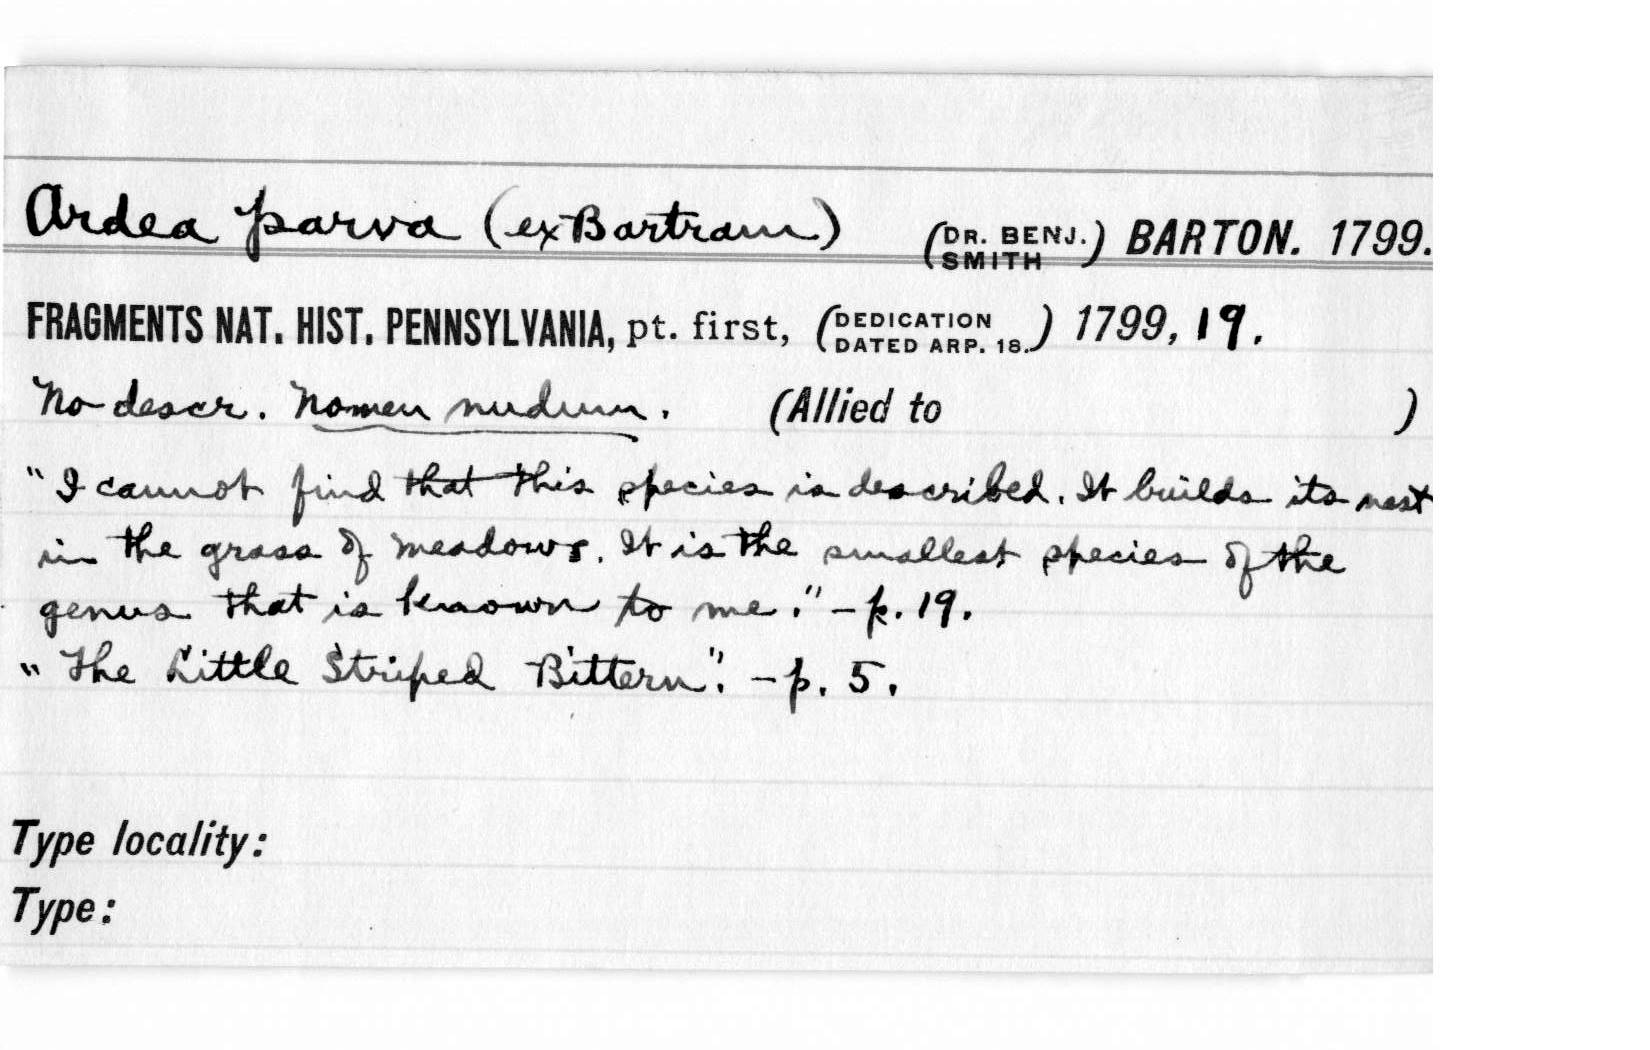 Ardea parva (ex Bartram) (DR. BENJ. SMITH) BARTON. 1799.
FRAGMENTS NAT. HIST. PENNSYLVANIA, pt. first, (DEDICATION DATED ARP. 18.) 1799, 19.
No descr. Nomen nudum. (Allied to )
"I cannot find that this species is described. It builds its nest
in the grass of meadows. It is the smallest species of the
genus that is known to me." – p. 19.
"The Little Striped Bittern". – p. 5.
Type locality:
Type: